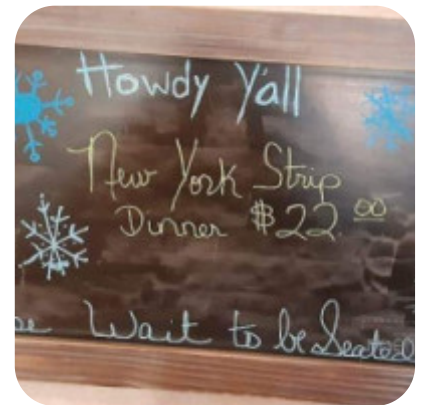 Howdy Y'all
New York Strip
Dinner $22.00
se Wait to be Seated